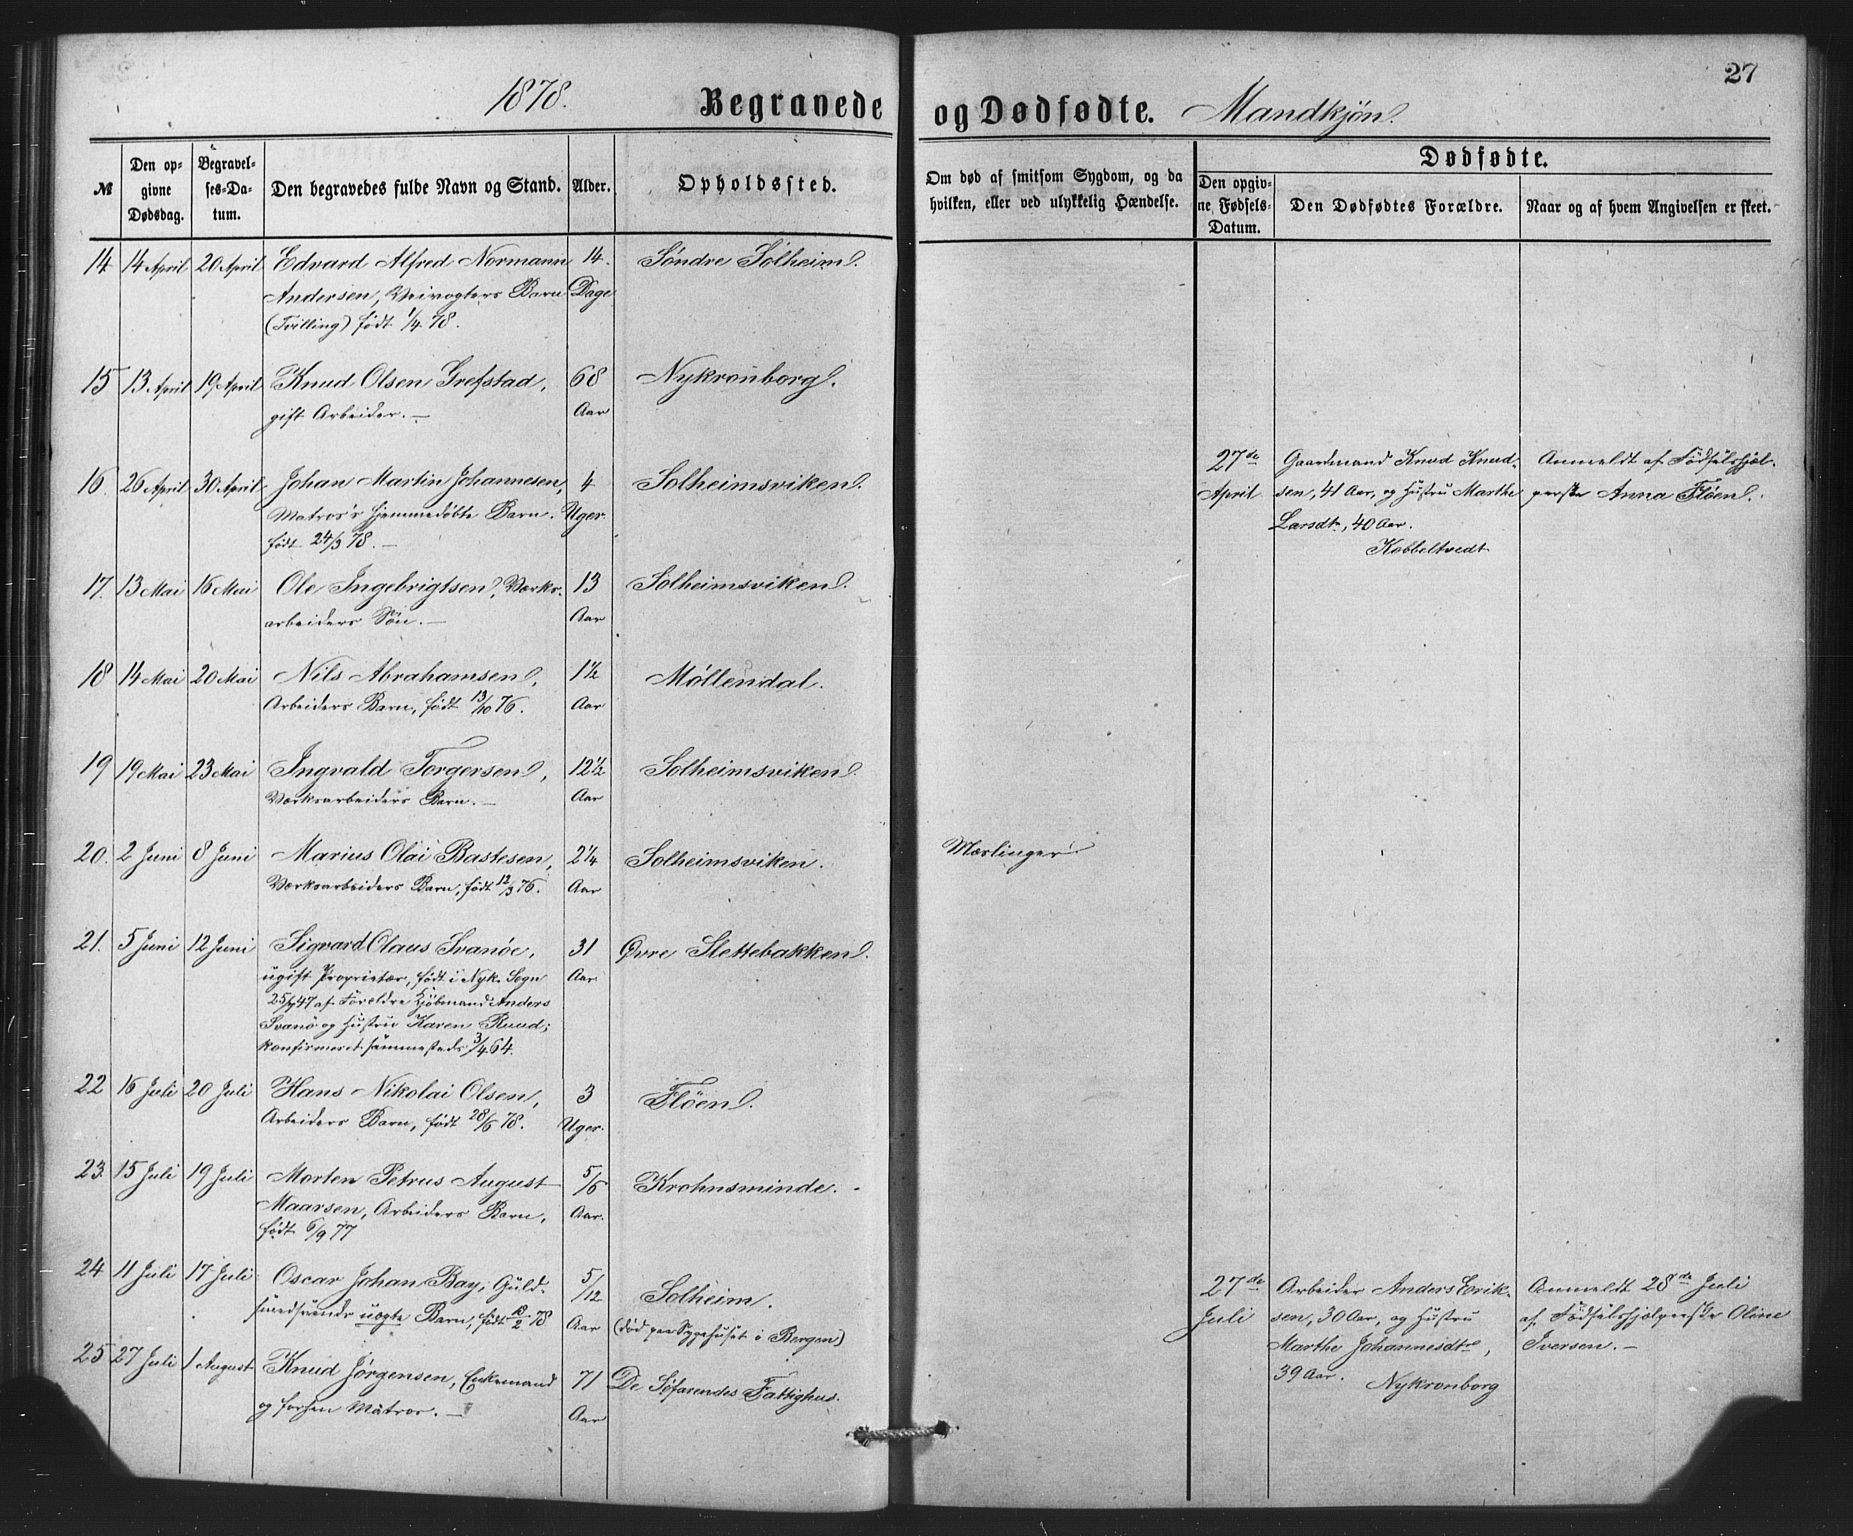 1878. Begravede og Dødfødte. Mandkjøn.
27
№
Den op-
givne
Dødsdag.
Begravel-
ses-Da-
tum.
Den begravedes fulde Navn og Stand.
Alder.
Opholdssted.
Om død af smitsom Sygdom, og da
hvilken, eller ved ulykkelig Hændelse.
Dødfødte.
Den opgiv-
ne Fødsels-
Datum.
Den Dødfødtes Forældre.
Naar og af hvem Angivelsen er skeet.
14 14 April 20 April Edvard Alfred Normann 14. Søndre Solheim.
Andersen, Veivogters Barn Dage
(Tvilling) født 1/4 78.
15 13 April 19 April Knud Olsen Grefstad, 68 Nykronborg.
gift Arbeider. — Aar
16. 26 April 30 April Johan Martin Johannesen, 4 Solheimsviken.
Matros's hjemmedøbte Barn. Uger.
født 24/3 78. —
27de Gaardmand Knud Knud- Anmeldt af Fødselshjæl-
April sen, 41 Aar, og Hustru Marthe perske Anna Fløen.
Larsdtr, 40 Aar.
Kobbeltvedt
17. 13 Mai 16 Mai Ole Ingebrigtsen, Værks- 13 Solheimsviken.
arbeiders Søn. — Aar
18 14 Mai 20 Mai Nils Abrahamsen, 1½ Møllendal.
Arbeiders Barn, født 13/10 76. Aar
19 19 Mai 23 Mai Ingvald Torgersen, 12½ Solheimsviken.
Værksarbeiders Barn. — Aar
20. 2 Juni 8 Juni Marius Olai Bastesen, 2¼ Solheimsviken. Mæslinger
Værksarbeiders Barn, født 12/3 76. Aar
21. 5 Juni 12 Juni Sigvard Olaus Svanöe, 31 Øvre Slettebakken.
ugift Proprietær, født i Nyk. Sogn Aar
47 af Foreldre Kjøbmand Anders
Svanö og Hustru Karen Ruud;
konfirmeret sammesteds 3/4 64.
22 16 Juli 20 Juli Hans Nikolai Olsen, 3 Fløen.
Arbeiders Barn, født 28/6 78. Uger.
23. 15 Juli 19 Juli Morten Petrus August 5/6 Krohnsminde.
Maarsen, Arbeiders Barn, Aar.
født 6/9 77
24 11 Juli 17 Juli Oscar Johan Bay, Guld- 5/12 Solheim.
smedsvends uægte Barn, født 12/2 78 Aar (død paa Sygehuset i Bergen)
27de Arbeider Anders Erik- Anmeldt 28de Juli
Juli sen, 30 Aar, og Hustru af Fødselshjælperske Oline
Marthe Johannesdtr, Iversen. —
39 Aar. Nykronborg
25 27 Juli 1 August Knud Jørgensen, Enkemand 71 De Søfarendes Fattighus.
og forhen Matros. — Aar